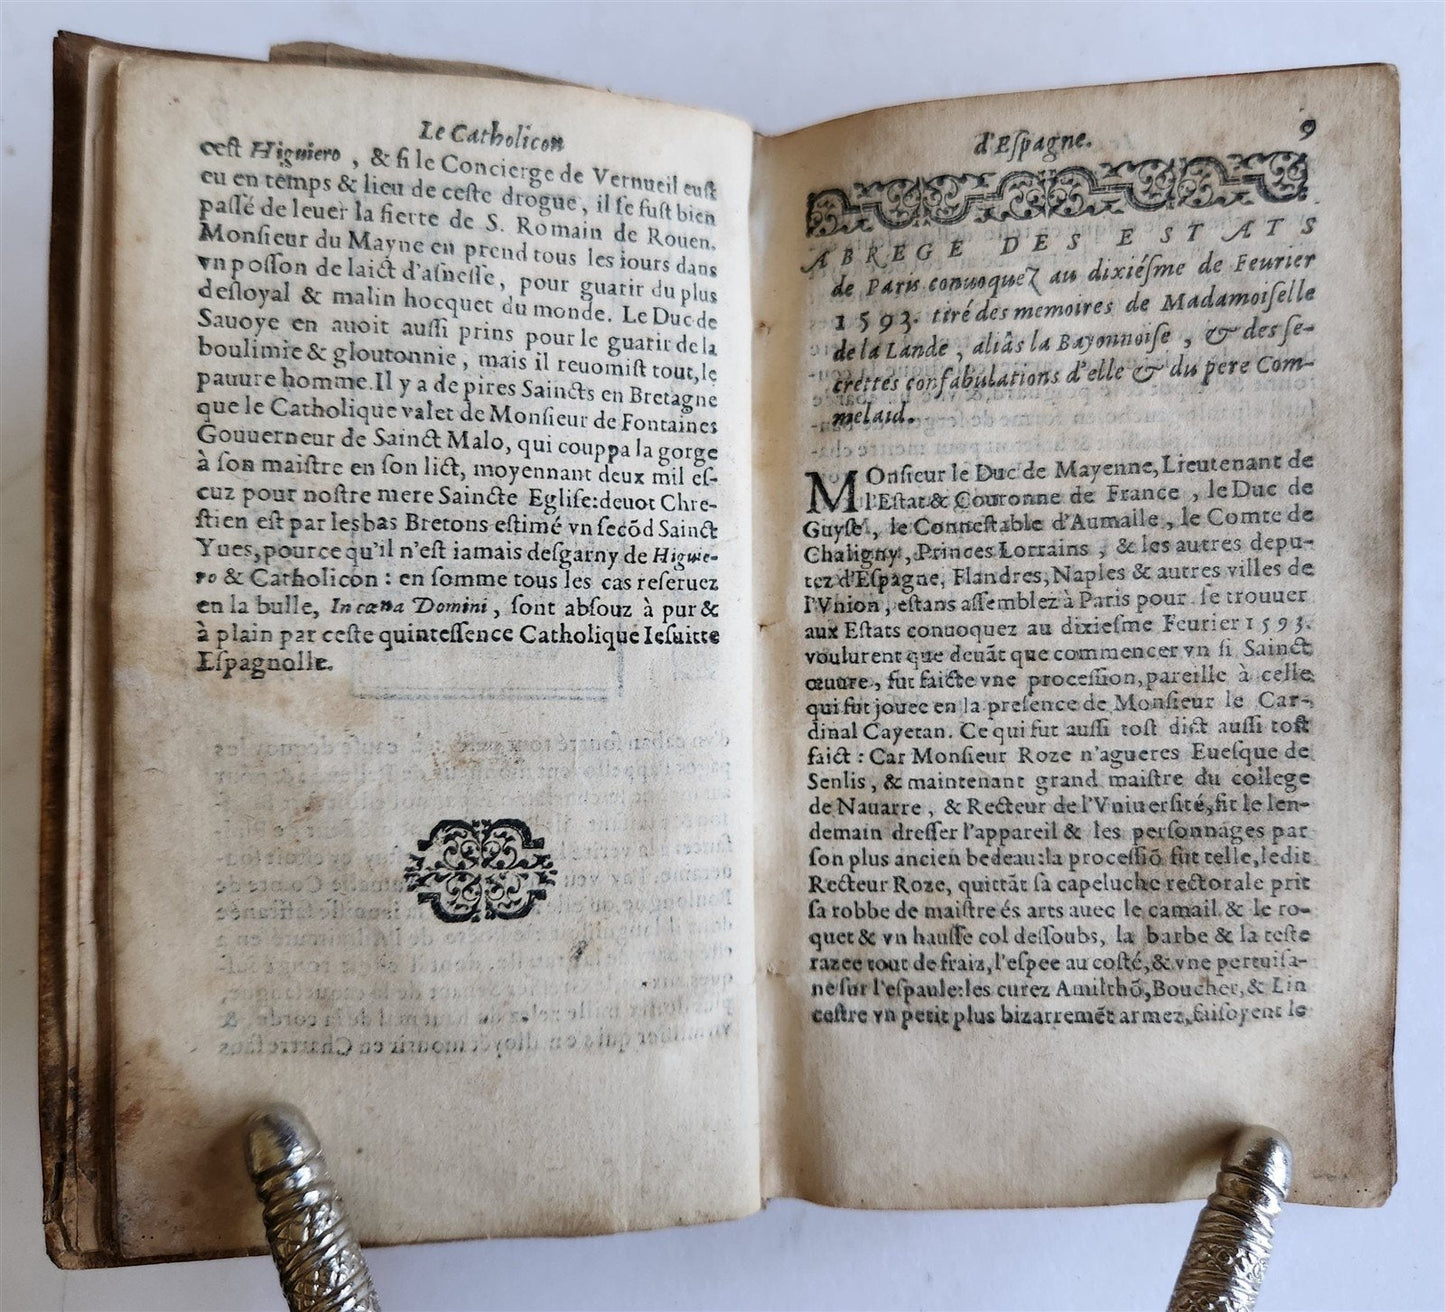 Le Catholicon
cest Higuiero, & si le Concierge de Vernueil eust
eu en temps & lieu de ceste drogue, il se fust bien
passé de leuer la fierte de S. Romain de Rouen.
Monsieur du Mayne en prend tous les iours dans
vn posson de laict d'asnesse, pour guarir du plus
desloyal & malin hocquet du monde. Le Duc de
Sauoye en auoit aussi prins pour le guarir de la
boulimie & gloutonnie, mais il reuomist tout, le
pauure homme. Il y a de pires Saincts en Bretagne
que le Catholique valet de Monsieur de Fontaines
Gouuerneur de Sainct Malo, qui couppa la gorge
à son maistre en son lict, moyennant deux mil es-
cuz pour nostre mere Saincte Eglise: deuot Chre-
stien est par les bas Bretons estimé vn secōd Sainct
Yues, pource qu'il n'est iamais desgarny de Higuie-
ro & Catholicon: en somme tous les cas reseruez
en la bulle, In cœna Domini, sont absouz à pur &
à plain par ceste quintessence Catholique Iesuitte
Espagnolle.
d'Espagne. 9
ABREGÉ DES ESTATS
de Paris conuoquez au dixiésme de Feurier
1593. tiré des memoires de Madamoiselle
de la Lande, aliâs la Bayonnoise, & des se-
crettes confabulations d'elle & du pere Com-
melaid.
MOnsieur le Duc de Mayenne, Lieutenant de
l'Estat & Couronne de France, le Duc de
Guyse, le Connestable d'Aumalle, le Comte de
Chaligny, Princes Lorrains, & les autres depu-
tez d'Espagne, Flandres, Naples & autres villes de
l'Vnion, estans assemblez à Paris pour se trouuer
aux Estats conuoquez au dixiesme Feurier 1593.
voulurent que deuāt que commencer vn si Sainct
œuure, fut faicte vne procession, pareille à celle
qui fut jouee en la presence de Monsieur le Car-
dinal Cayetan. Ce qui fut aussi tost dict aussi tost
faict: Car Monsieur Roze n'agueres Euesque de
Senlis, & maintenant grand maistre du college
de Nauarre, & Recteur de l'Vniuersité, fit le len-
demain dresser l'appareil & les personnages par
son plus ancien bedeau: la processiō fut telle, ledit
Recteur Roze, quittāt sa capeluche rectorale prit
sa robbe de maistre és arts auec le camail & le ro-
quet & vn hausse col dessoubs, la barbe & la teste
razee tout de fraiz, l'espee au costé, & vne pertuisa-
ne sur l'espaule: les curez Amilthō, Boucher, & Lin
cestre vn petit plus bizarremēt armez, faisoyent le